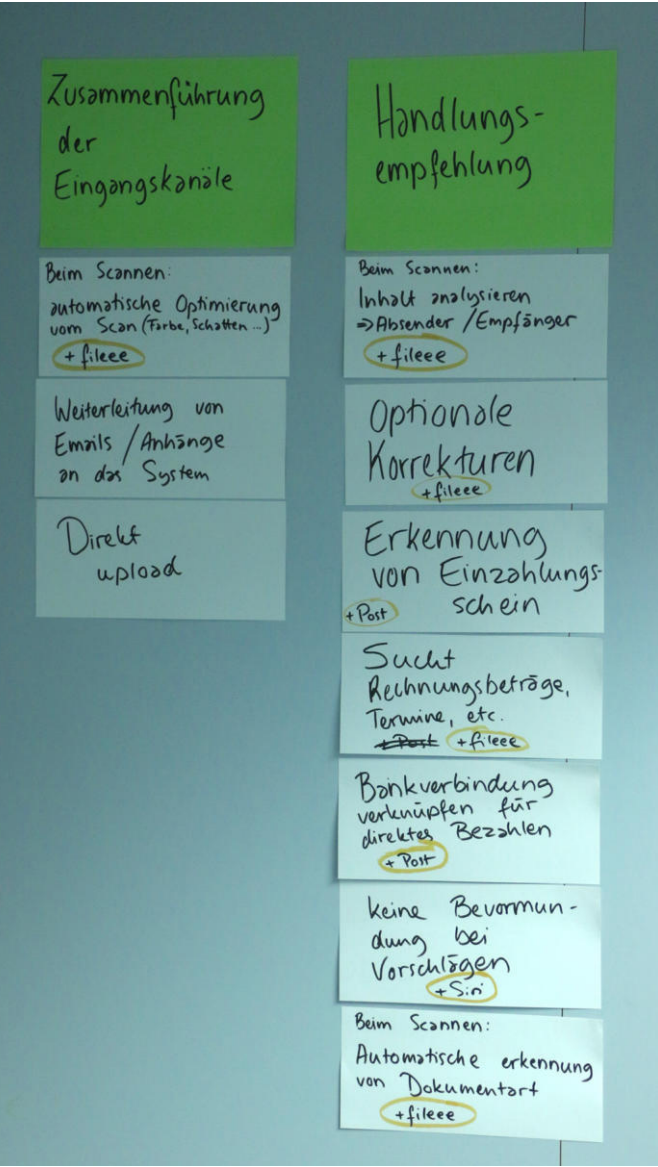 Zusammenführung
der
Eingangskanäle
Beim Scannen:
automatische Optimierung
vom Scan (Farbe, Schatten ...)
+ fileee
Weiterleitung von
Emails / Anhänge
an das System
Direkt
upload
Handlungs-
empfehlung
Beim Scannen:
Inhalt analysieren
⇒ Absender / Empfänger
+ fileee
Optionale
Korrekturen
+ fileee
Erkennung
von Einzahlungs-
schein
+ Post
Sucht
Rechnungsbeträge,
Termine, etc.
+ Post + fileee
Bankverbindung
verknüpfen für
direktes Bezahlen
+ Post
keine Bevormun-
dung bei
Vorschlägen
+ Siri
Beim Scannen:
Automatische erkennung
von Dokumentart
+ fileee